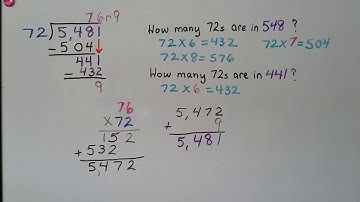 76 r 9
72 ) 5,481
- 504
441
- 432
9
How many 72s are in 548 ?
72 x 6 = 432 72 x 7 = 504
72 x 8 = 576
How many 72s are in 441 ?
72 x 6 = 432
76
x 72
152
+ 532
5,472
5,472
+ 9
5,481